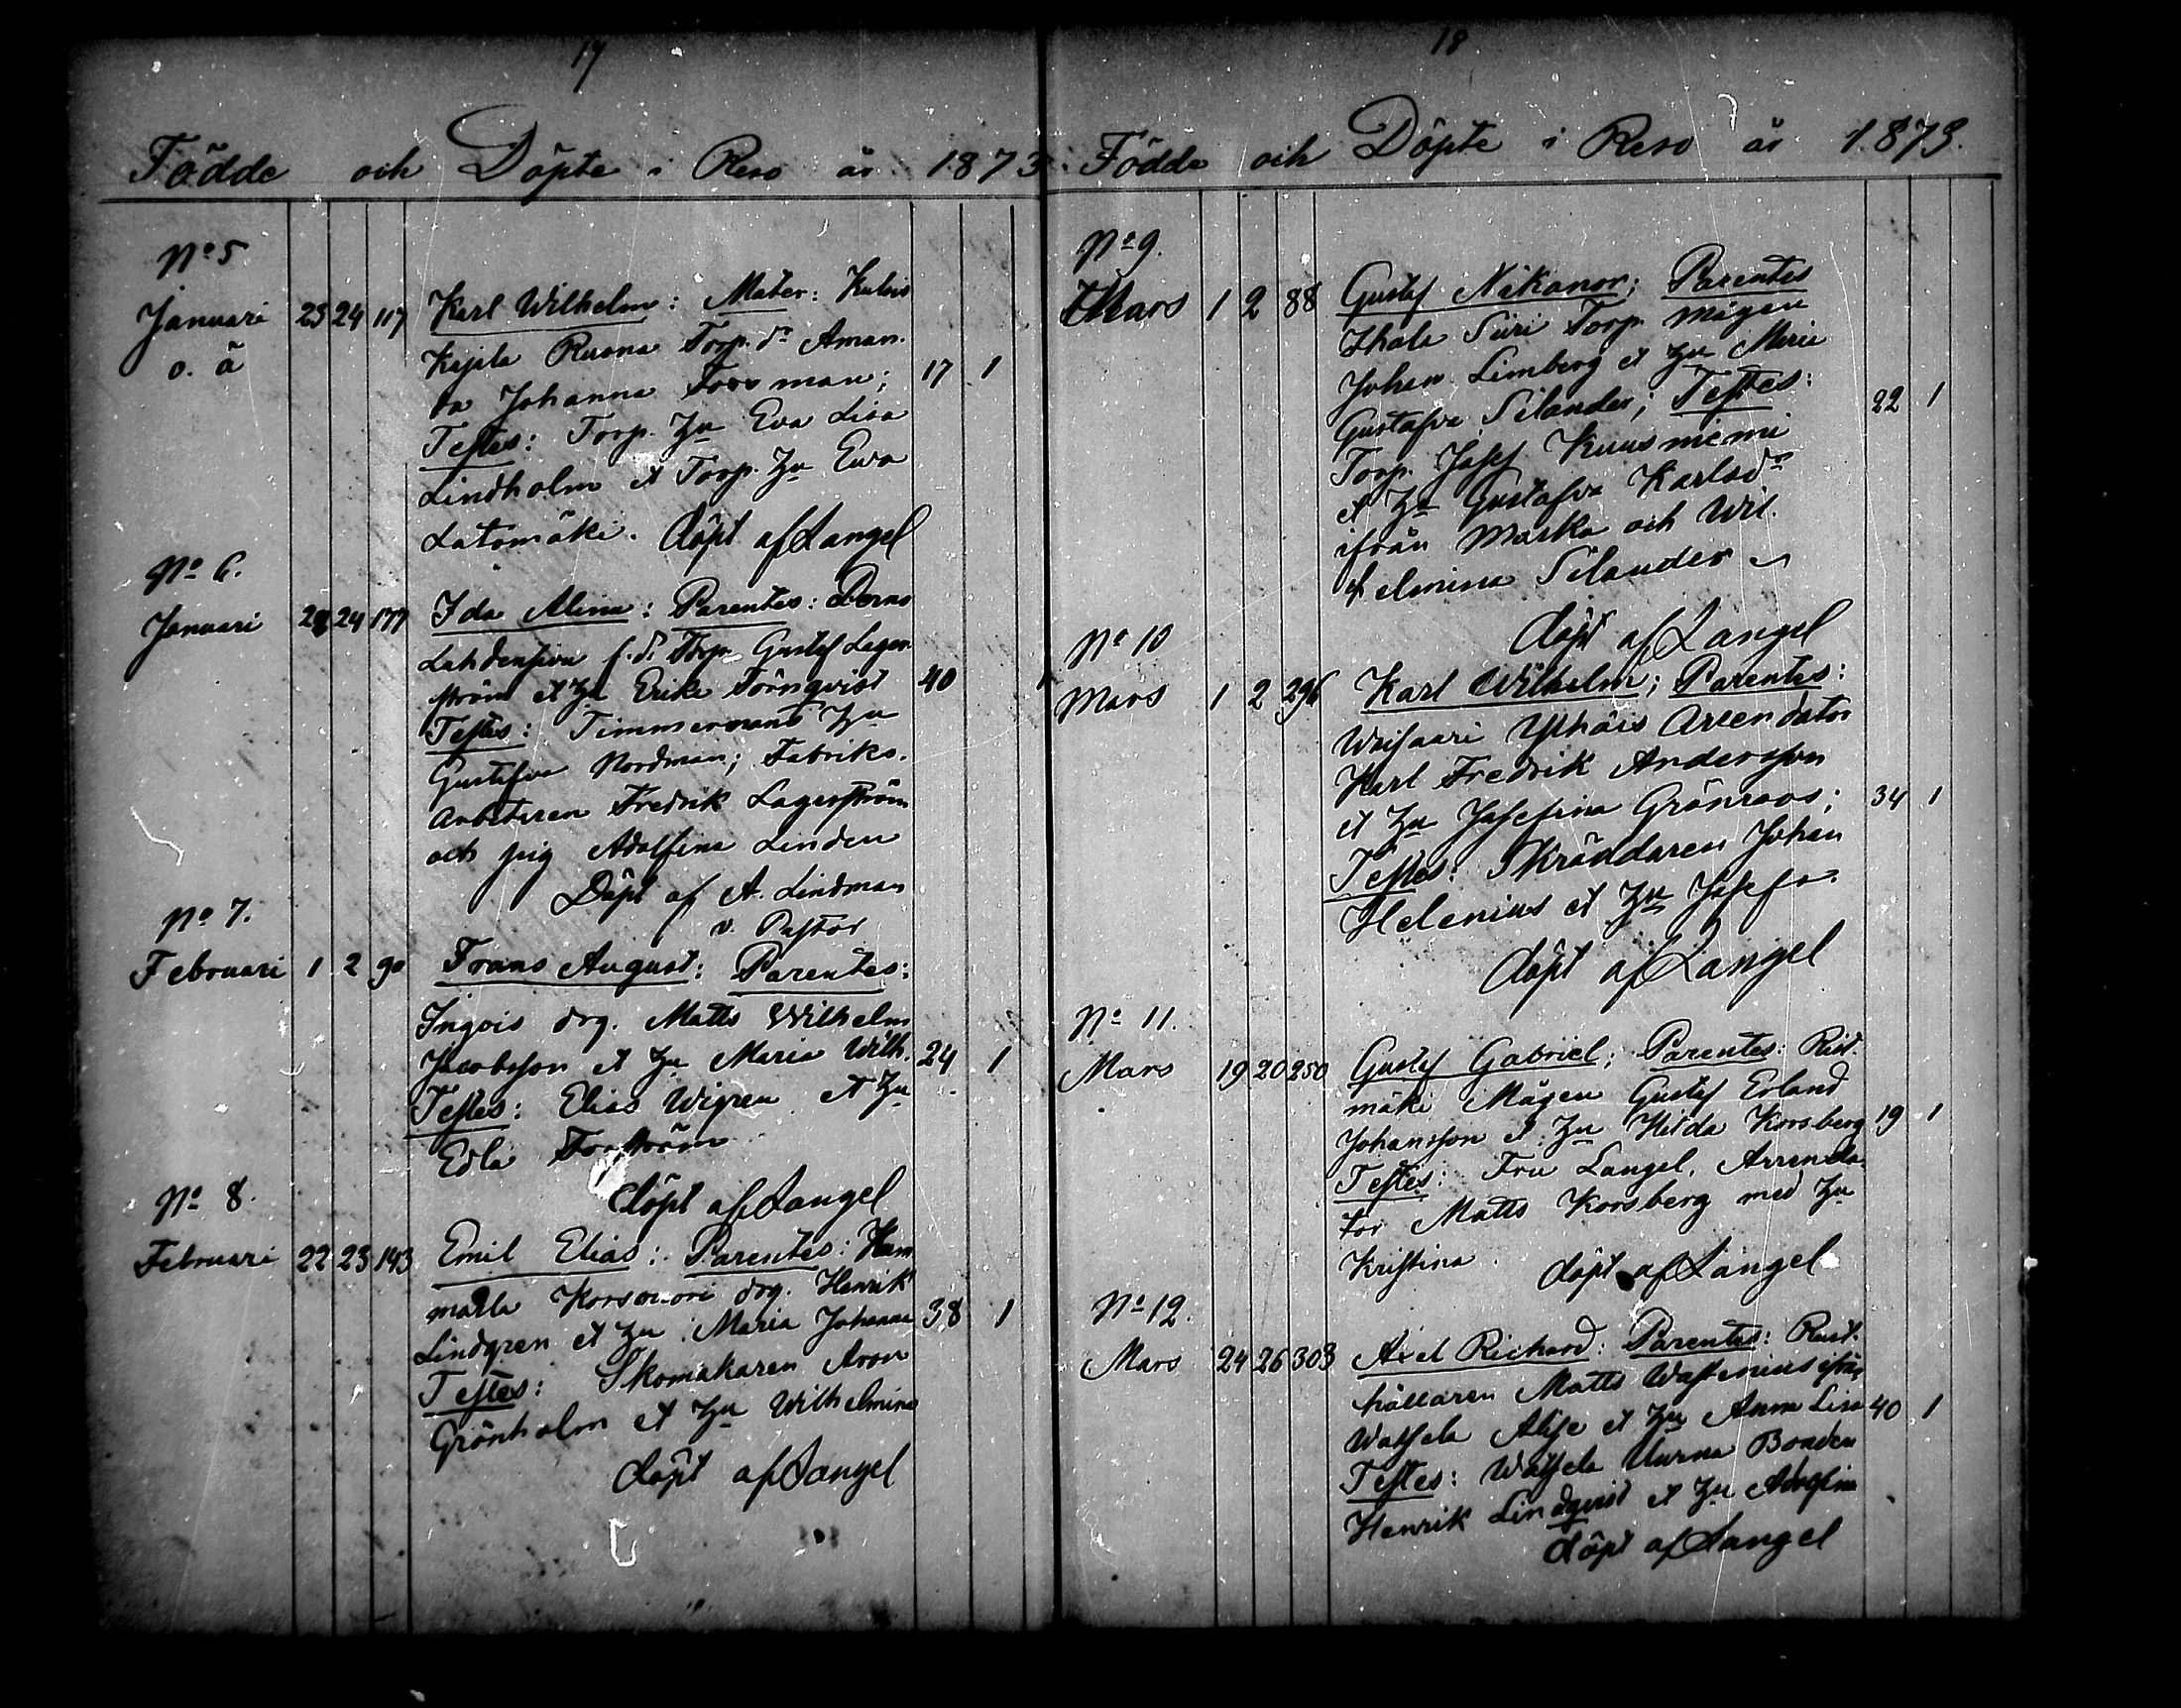 17
Födde och Döpte i Reso år 1873
No 5
Januari 23 24 117 Karl Wilhelm: Mater:
o. ä
Kajila Ruona Torp. dr Aman-
da Johanna Forsman; 17 1
Testes: Torp. Hu Eva Lisa
Lindholm et Torp. Hu Ewa
Latomäki. döpt af Langel
No 6.
Januari 24 177 Ida Alina: Parentes:
f.d. Torp. Gustaf Lager-
ström et Hu Erika Törnqvist 40
Testes: Timmermans Hu
Gustafva Nordman; Fabriks-
Arbetaren Fredrik Lagerström
och pig Adolfina Linden
Döpt af A. Lindman
v. Pastor
No 7.
Februari 1 2 90 Frans August: Parentes:
Ingois drg. Matts Wilhelm
Jacobsson et Hu Maria Wilh. 24 1
Testes: Elias Wigren et Hu
Edla Forström
döpt af Langel
No 8.
Februari 22 23 143 Emil Elias: Parentes: Ham
marla Korsvuori drg. Henrik
Lindgren et Hu Maria Johanna 38 1
Testes: Skomakaren Aron
Grönholm et Hu Wilhelmina
döpt af Langel
18
Födde och Döpte i Reso år 1873.
No 9.
Mars 1 2 88 Gustaf Nikanor; Parentes
Ihala Siiri Torp. mågen
Johan Limberg et Hu Maria
Gustafva Silander; Testes: 22 1
Torp. Josef Kuusniemi
et Hu Gustafva Karlsdr
ifrån Masko och Wil-
helmina Silander
döpt af Langel
No 10
Mars 1 2 296 Karl Wilhelm; Parentes:
Ylhäis Arrendator
Karl Fredrik Andersson
et Hu Josefina Grönroos; 34 1
Testes: Skräddaren Johan
Helenius et Hu Josefa.
döpt af Langel
No 11.
Mars 19 20 250 Gustaf Gabriel; Parentes: Rist-
mäki Mågen Gustaf Erland
Johansson et Hu Hilda Korsberg 19 1
Testes: Fru Langel, Arrenda-
tor Matts Korsberg med Hu
Kristina. döpt af Langel
No 12.
Mars 24 26 303 Axel Richard: Parentes: Rust-
hållaren Matts Wastenius ifrån
Watsela Alije et Hu Anna Lisa 40 1
Testes: Watsela Uurna Bonden
Henrik Lindqvist et Hu Adolfina
döpt af Langel